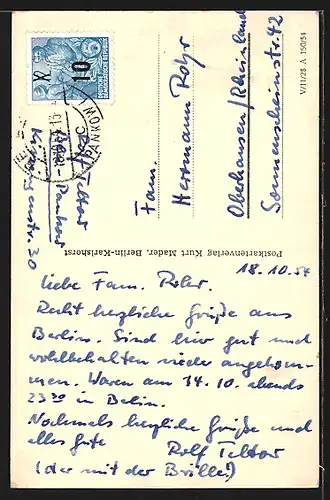 V/11/28 A 150/54
Fam.
Herrmann Rohr
Oberhausen/Rheinland
Sonnenscheinstr. 42
Postkartenverlag Kurt Mader, Berlin-Karlshorst
DEUTSCHE DEMOKRATISCHE REPUBLIK
10
PANKOW
Teltor
Berlin-Pankow
18.10.54
Liebe Fam. Rohr.
Recht herzliche Grüße aus
Berlin. Sind hier gut und
wohlbehalten wieder angekom-
men. Waren am 14.10. abends
23 30 in Berlin.
Nochmals herzliche Grüße und
alles Gute
Rolf Teltor
(der mit der Brille!)